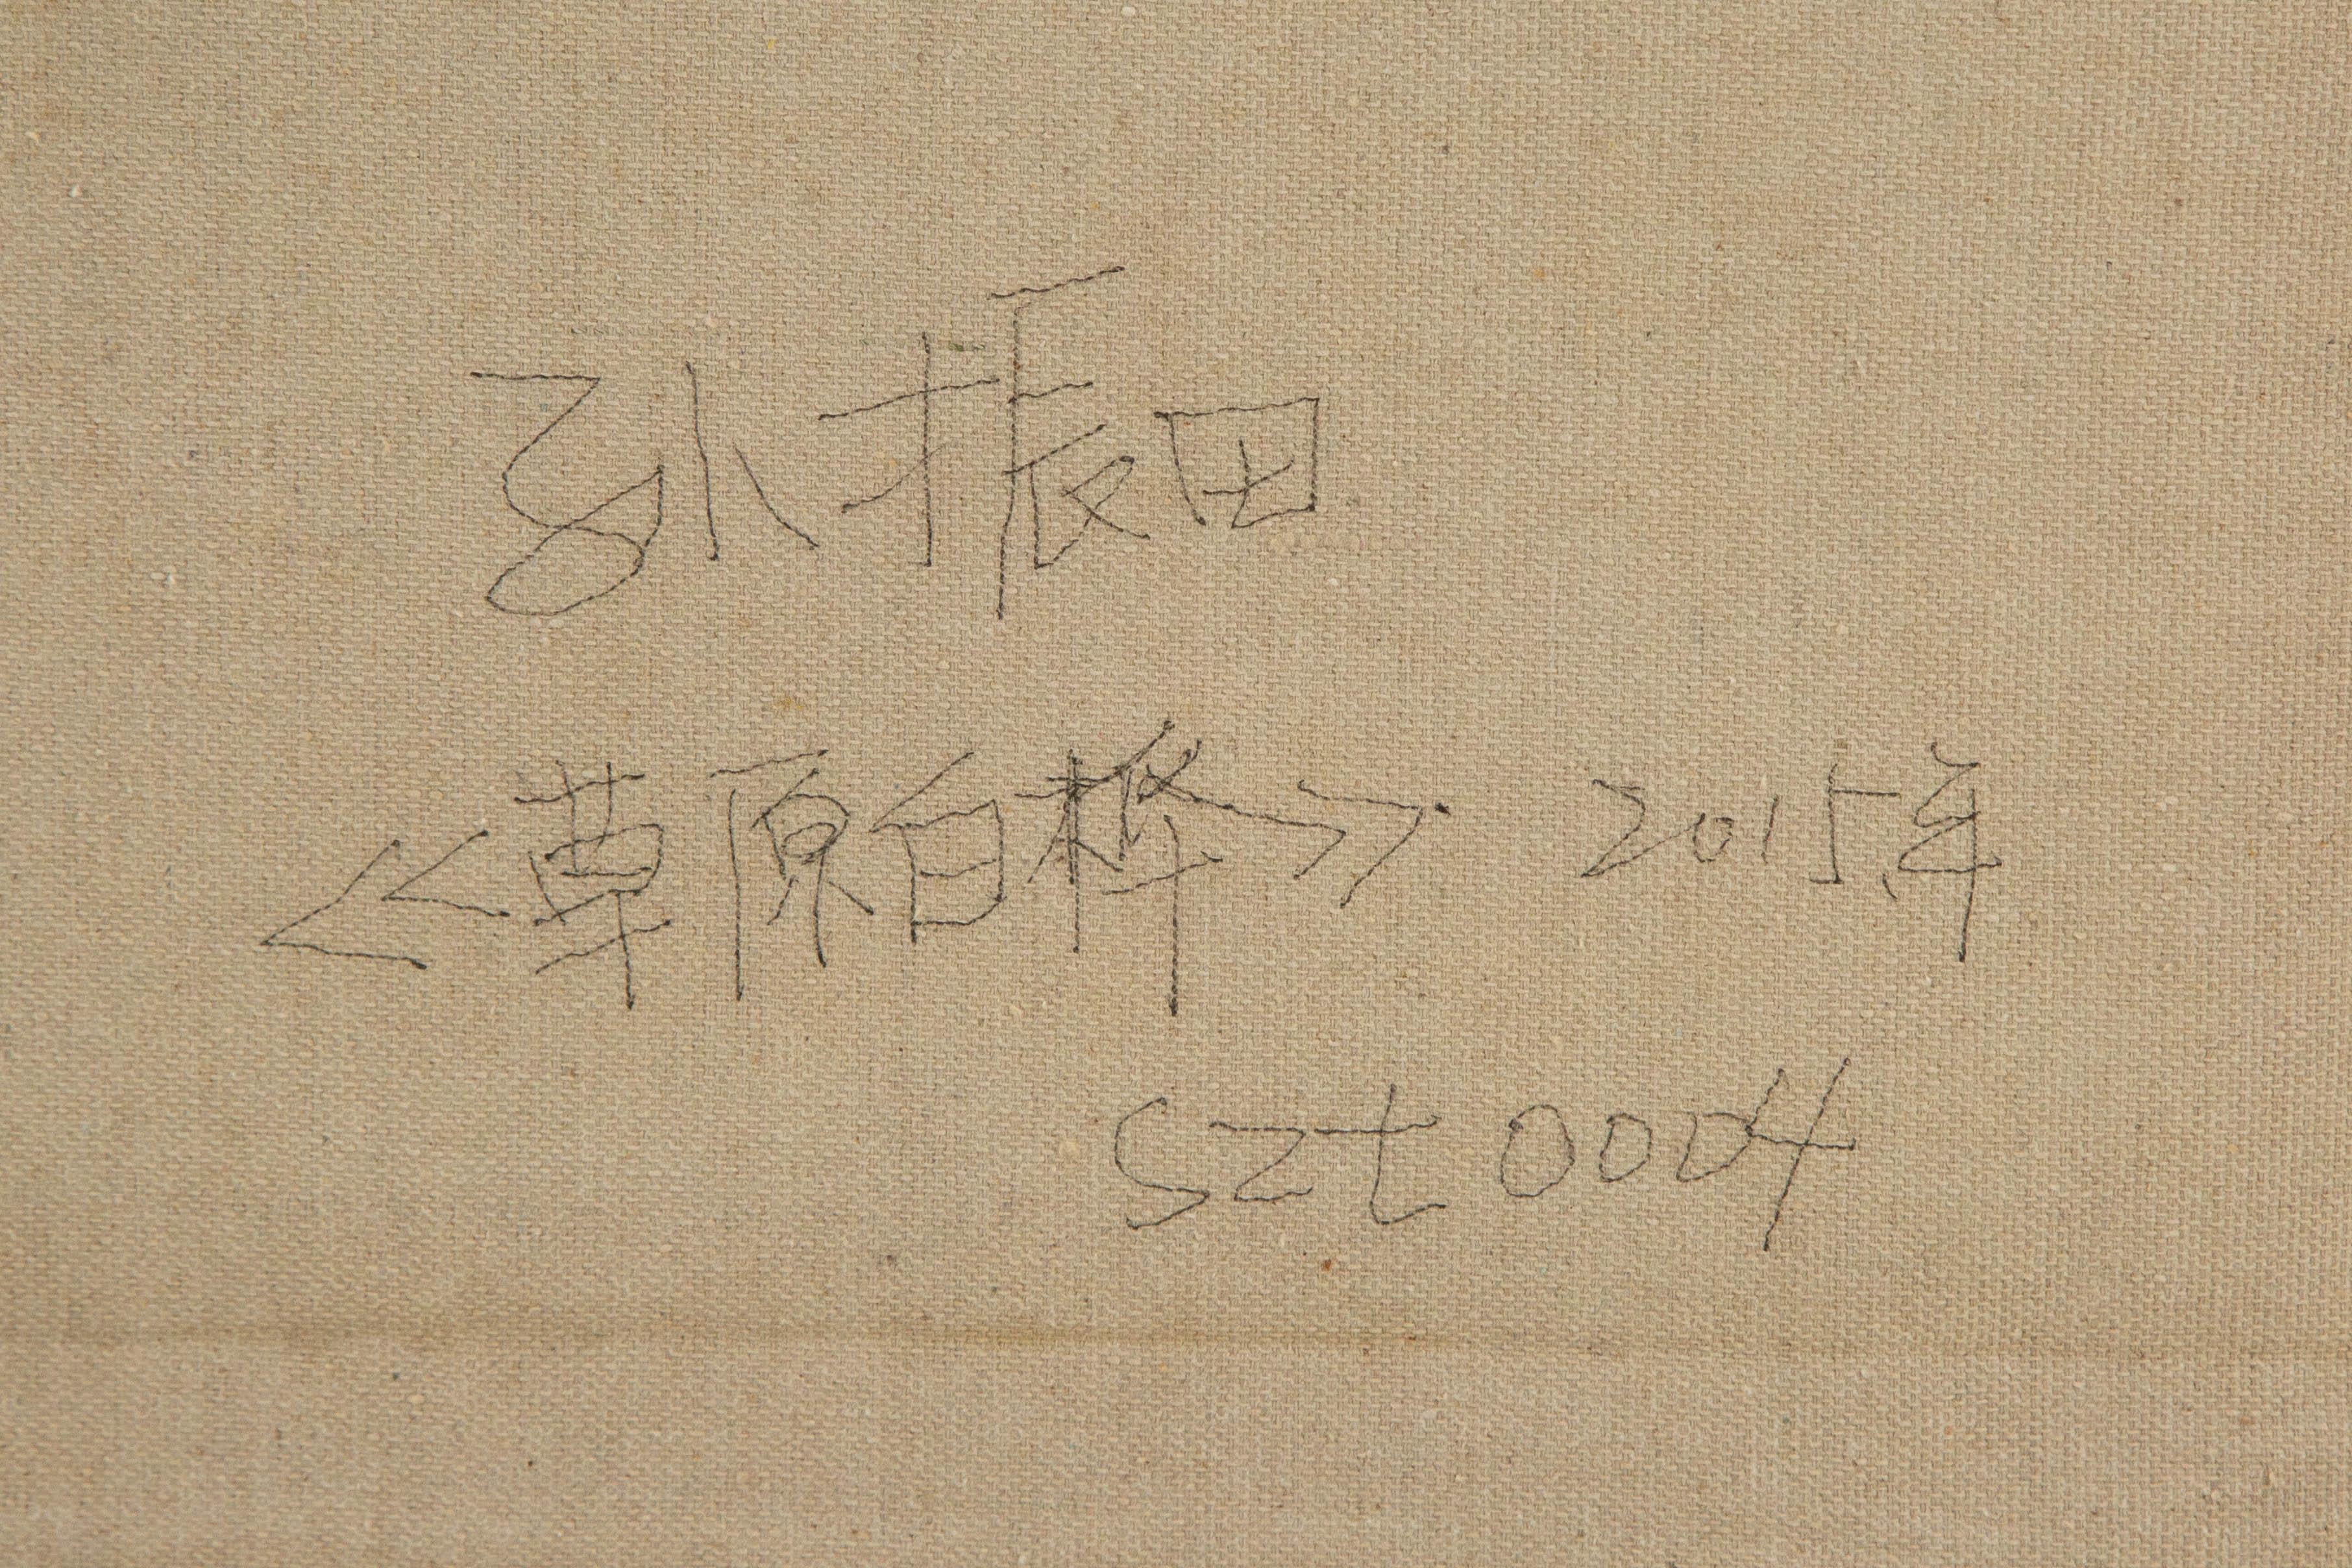 孙振田
《草原白桦》 2015年
szt 0004